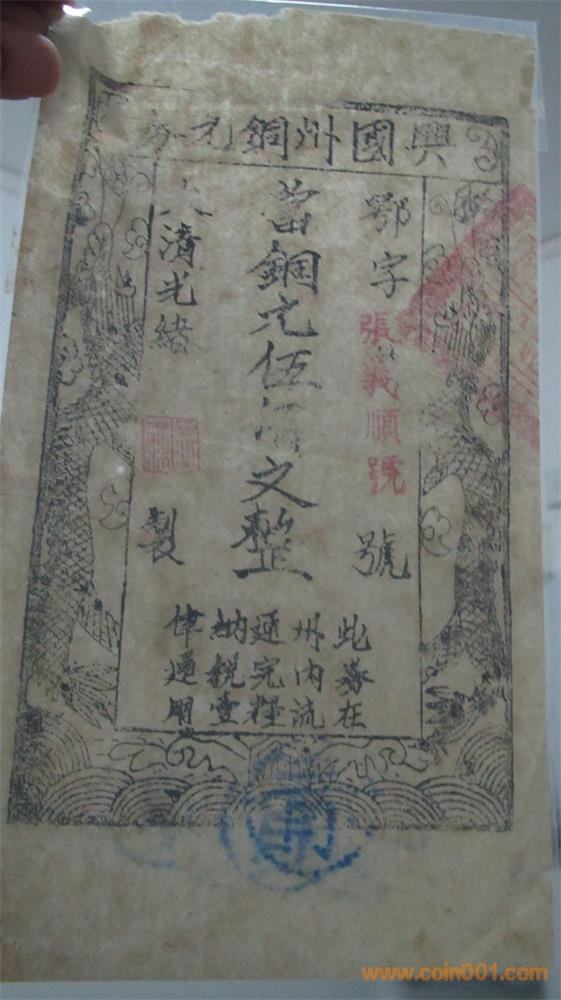 興國州銅元
鄂字 號
張義順號
當銅元伍文整
大清光緒 製
此券在
州內流
通完糧
納稅壹
律通用
www.coin001.com